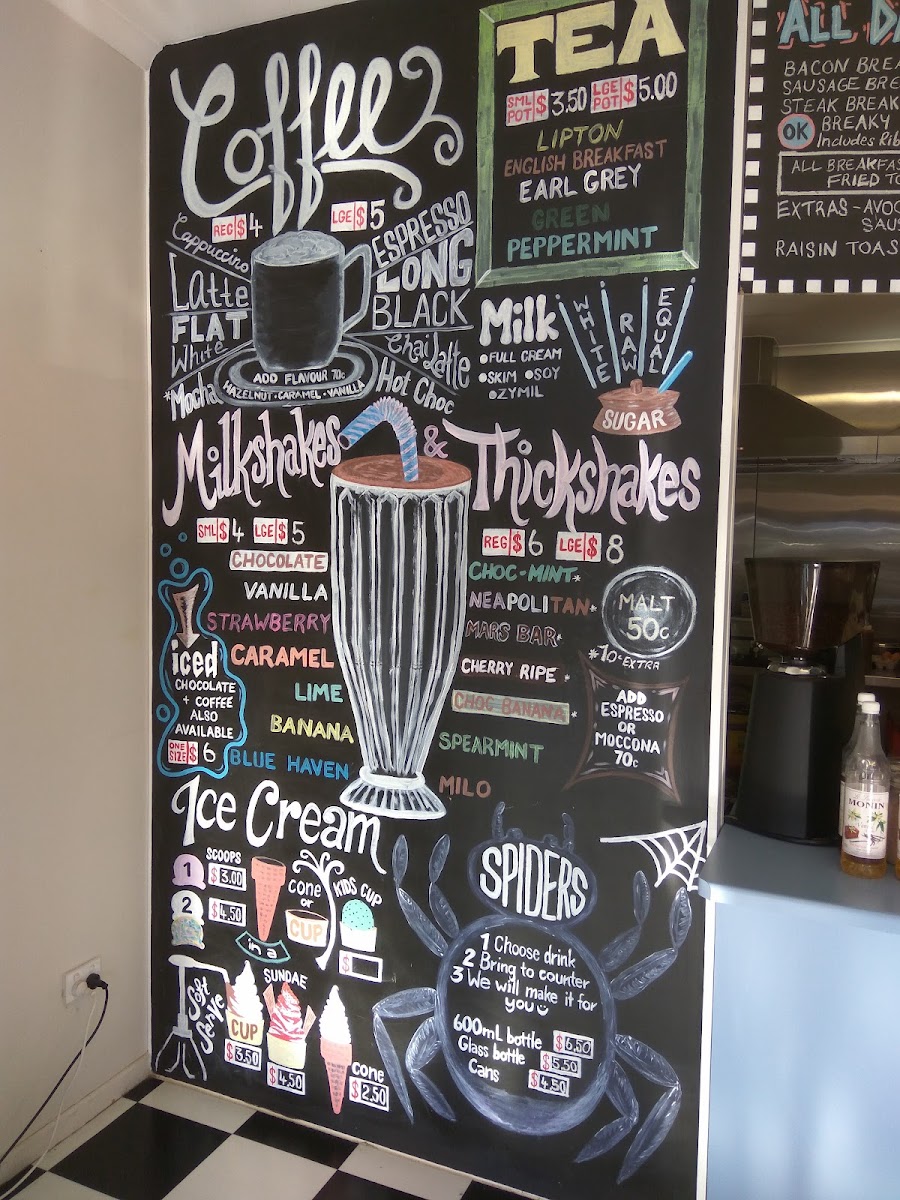 Coffee
REG $4
LGE $5
Cappuccino
Latte
FLAT
White
*Mocha
ESPRESSO
LONG
BLACK
Chai Latte
Hot Choc
ADD FLAVOUR 70c
HAZELNUT • CARAMEL • VANILLA
TEA
SML POT $3.50 LGE POT $5.00
LIPTON
ENGLISH BREAKFAST
EARL GREY
GREEN
PEPPERMINT
Milk
•FULL CREAM
•SKIM •SOY
•ZYMIL
WHITE
RAW
EQUAL
SUGAR
Milkshakes & Thickshakes
SML $4 LGE $5
CHOCOLATE
VANILLA
STRAWBERRY
CARAMEL
LIME
BANANA
BLUE HAVEN
REG $6 LGE $8
CHOC-MINT*
NEAPOLITAN*
MARS BAR*
CHERRY RIPE *
CHOC BANANA*
SPEARMINT
MILO
MALT
50c
*70c EXTRA
ADD
ESPRESSO
OR
MOCCONA
70c
iced
CHOCOLATE
+ COFFEE
ALSO
AVAILABLE
ONE SIZE $6
Ice Cream
SCOOPS
1 $3.00
2 $4.50
in a
CONE
or
CUP
KIDS CUP
$
Soft Serve
CUP
$3.50
SUNDAE
$4.50
CONE
$2.50
SPIDERS
1 Choose drink
2 Bring to counter
3 We will make it for
you
600mL bottle $6.50
Glass bottle $5.50
Cans $4.50
ALL DA
BACON BREA
SAUSAGE BRE
STEAK BREAK
OK BREAKY
Includes Rib
ALL BREAKFAS
FRIED TO
EXTRAS - AVOC
SAUS
RAISIN TOAS
MONIN